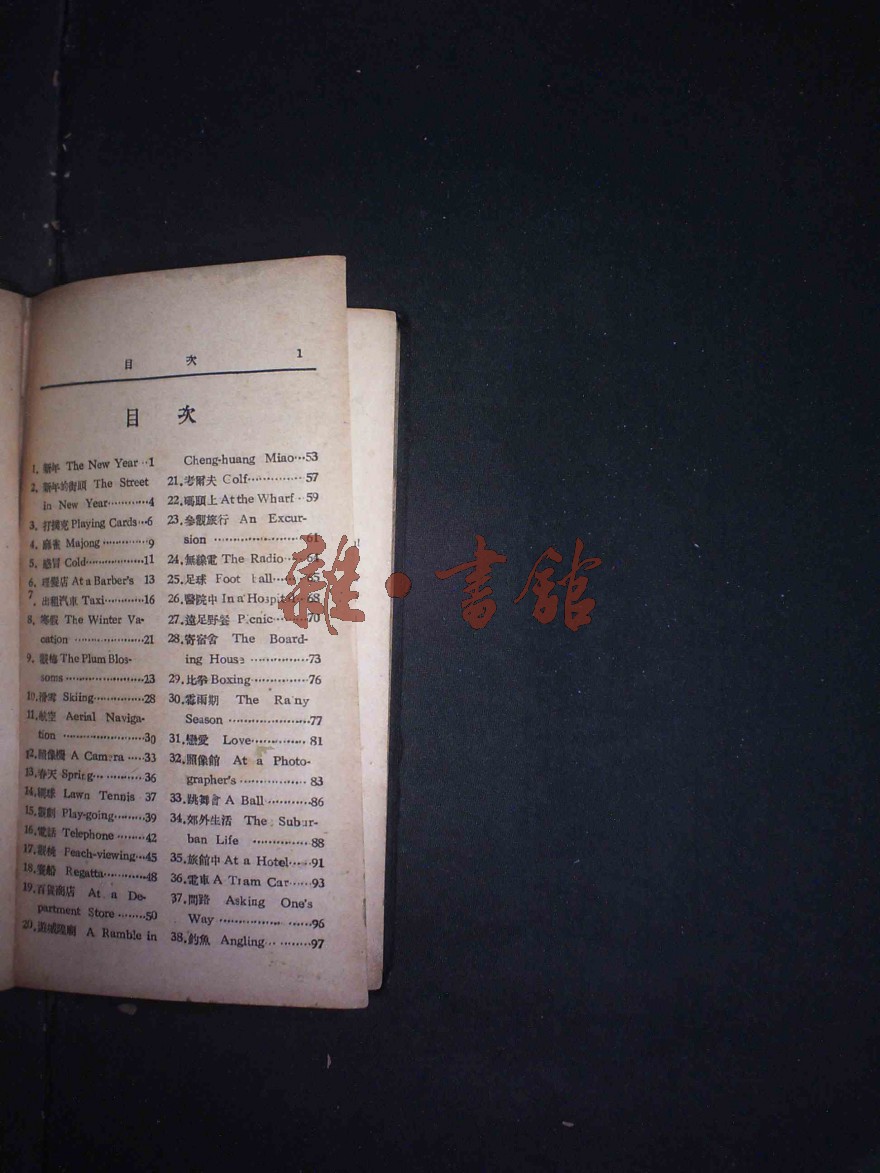 目 次 1
目 次
1. 新年 The New Year ··1
2. 新年的街頭 The Street
in New Year············4
3. 打撲克 Playing Cards···6
4. 麻雀 Majong ·············9
5. 感冒 Cold···············11
6. 理髮店 At a Barber's 13
7. 出租汽車 Taxi·········16
8. 寒假 The Winter Va-
cation ···················21
9. 觀梅 The Plum Blos-
soms·····················23
10. 滑雪 Skiing·············28
11. 航空 Aerial Naviga-
tion ·····················30
12. 照像機 A Camera ····33
13. 春天 Spring·············36
14. 網球 Lawn Tennis 37
15. 觀劇 Play-going········39
16. 電話 Telephone ········42
17. 觀桃 Peach-viewing···45
18. 賽船 Regatta···········48
19. 百貨商店 At a De-
partment Store ········50
20. 遊城隍廟 A Ramble in
Cheng-huang Miao···53
21. 考爾夫 Colf·············· 57
22. 碼頭上 At the Wharf · 59
23. 參觀旅行 An Excur-
sion ·····················61
24. 無線電 The Radio·····64
25. 足球 Foot ball·······65
26. 醫院中 In a Hospital··68
27. 遠足野餐 Picnic·······70
28. 寄宿舍 The Board-
ing House ···············73
29. 比拳 Boxing············76
30. 霉雨期 The Rainy
Season ··················77
31. 戀愛 Love·············· 81
32. 照像館 At a Photo-
grapher's ················ 83
33. 跳舞會 A Ball ···········86
34. 郊外生活 The Subur-
ban Life ················ 88
35. 旅館中 At a Hotel······91
36. 電車 A Tram Car······93
37. 問路 Asking One's
Way ·····················96
38. 釣魚 Angling··········97
雜·書館